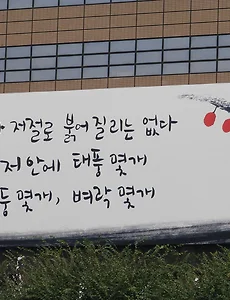 저절로 붉어질리는 없다
저 안에 태풍 몇개
몇개, 벼락 몇개